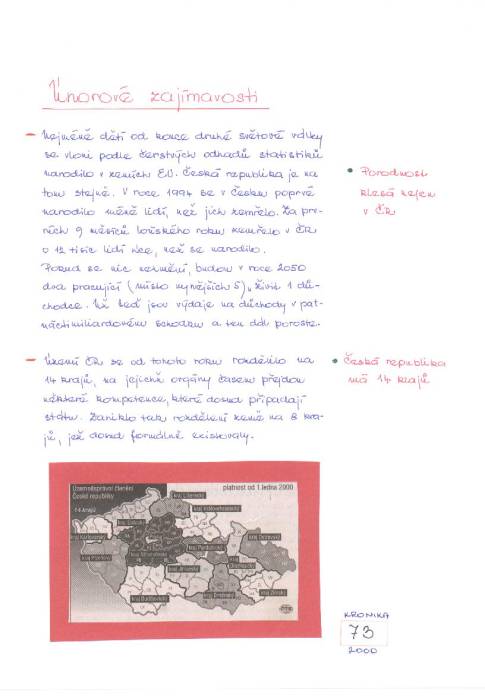 Únorové zajímavosti
– Nejméně dětí od konce druhé světové války
se vloni podle čerstvých odhadů statistiků
narodilo v zemích EU. Česká republika je na
tom stejně. V roce 1994 se v Česku poprvé
narodilo méně lidí, než jich zemřelo. Za prv-
ních 9 měsíců loňského roku zemřelo v ČR
o 12 tisíc lidí více, než se narodilo.
Pokud se nic nezmění, budou v roce 2050
dva pracující (místo nynějších 5) "živit" 1 dů-
chodce. Už teď jsou výdaje na důchody v pat-
náctimiliardovém schodku a ten dál poroste.
• Porodnost
klesá nejen
v ČR
– Území ČR se od tohoto roku rozdělilo na
14 krajů, na jejichž orgány časem přejdou
některé kompetence, které dosud připadají
státu. Zaniklo tak rozdělení země na 8 kra-
jů, jež dosud formálně existovaly.
• Česká republika
má 14 krajů
Územněsprávní členění
České republiky
platnost od 1.ledna 2000
14 krajů
kraj Liberecký
kraj Královéhradecký
kraj Karlovarský
kraj Pardubický
kraj Ostravský
kraj Olomoucký
kraj Jihlavský
kraj Budějovický
kraj Brněnský
kraj Zlínský
KRONIKA
73
2000